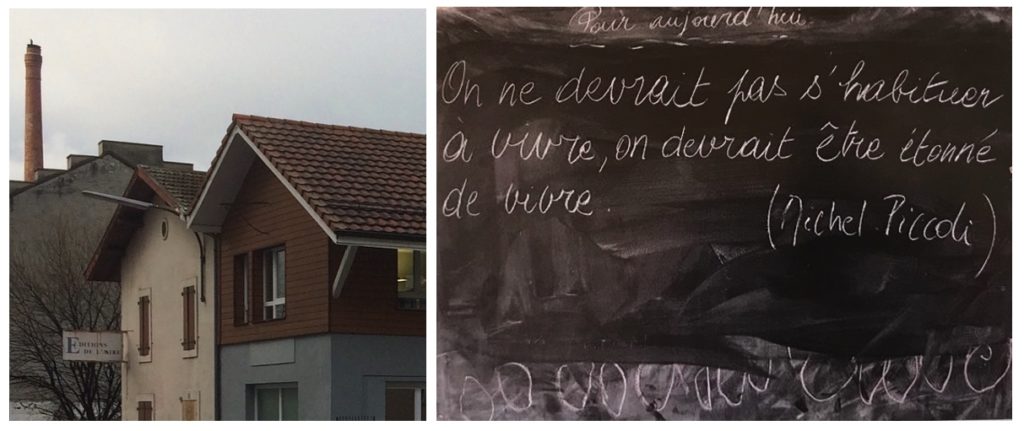 EDITIONS
DE L'AIRE
Pour aujourd'hui
On ne devrait pas s'habituer
à vivre, on devrait être étonné
de vivre.
(Michel Piccoli)